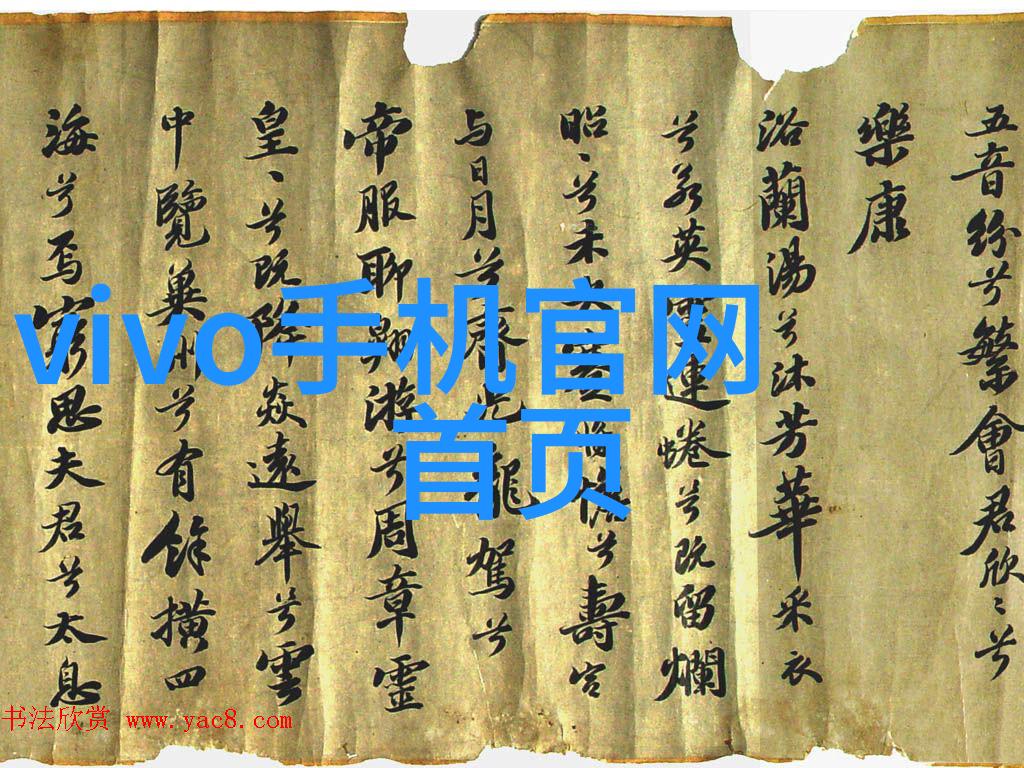 五音纷兮繁會君欣〻兮
樂康
浴蘭湯兮沐芳華采衣
兮若英靈連蜷兮既留爛
昭〻兮未央蹇憺兮壽宮
与日月兮齊光龍駕兮
帝服聊翱游兮周章靈
皇〻兮既降焱遠舉兮雲
中覽兾州兮有餘橫四
海兮焉窮思夫君兮太息
vivo手机官网
首页
书法欣赏 www.yac8.com